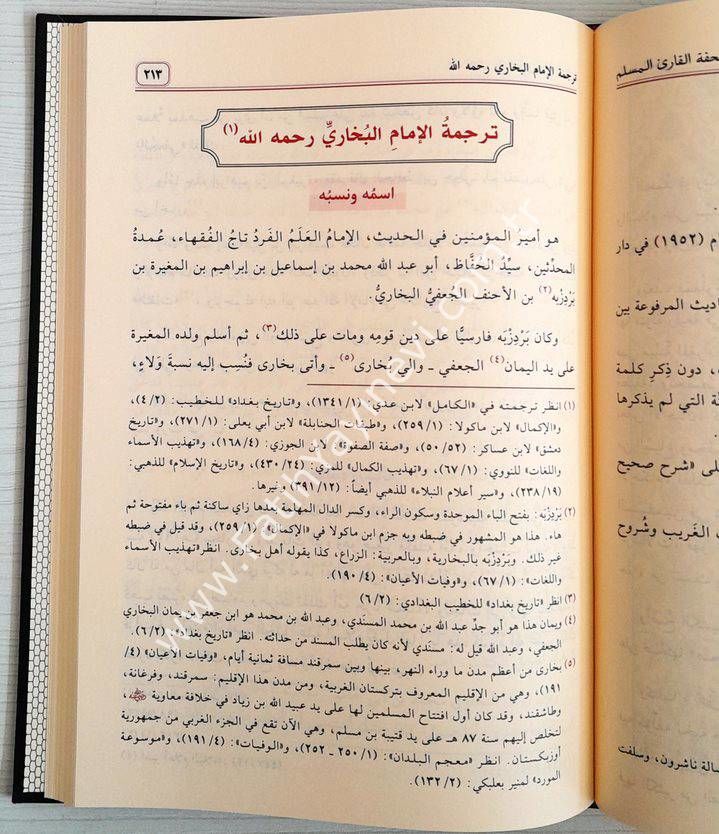 ترجمة الإمام البخاري رحمه الله
٢١٣
ترجمةُ الإمامِ البُخاريِّ رحمه الله (١)
اسمُه ونسبُه
هو أميرُ المؤمنين في الحديث، الإمامُ العَلَمُ الفَردُ تاجُ الفُقهاء، عُمدةُ
المحدِّثين، سيِّدُ الحُفَّاظ، أبو عبد الله محمد بن إسماعيل بن إبراهيم بن المغيرة بن
بَرْدِزْبَه(٢) بن الأحنف الجعفيُّ البخاريُّ.
وكان بَرْدِزْبَه فارسيًّا على دين قومِه ومات على ذلك(٣)، ثم أسلم ولده المغيرة
على يد اليمان(٤) الجعفي ـ والي بُخارى(٥) ـ وأتى بخارى فنُسِب إليه نسبةَ وَلاءٍ،
(١) انظر ترجمته في «الكامل» لابن عدي: (١/ ١٣٤)، و«تاريخ بغداد» للخطيب: (٢/ ٤)،
و«الإكمال» لابن ماكولا: (١/ ٢٥٩)، و«طبقات الحنابلة» لابن أبي يعلى: (١/ ٢٧١)، و«تاريخ
دمشق» لابن عساكر: (٥٢/ ٥٠)، و«صفة الصفوة»: لابن الجوزي: (٤/ ١٦٨)، و«تهذيب الأسماء
واللغات» للنووي: (١/ ٦٧)، و«تهذيب الكمال» للمزي: (٢٤/ ٤٣٠)، و«تاريخ الإسلام» للذهبي:
(١٩/ ٢٣٨)، و«سير أعلام النبلاء» للذهبي أيضاً: (١٢/ ٣٩١)، وغيرها.
(٢) بَرْدِزْبَه: بفتح الباء الموحدة وسكون الراء، وكسر الدال المهملة بعدها زاي ساكنة ثم باء مفتوحة ثم
هاء. هذا هو المشهور في ضبطه وبه جزم ابن ماكولا في «الإكمال»: (١/ ٢٥٩)، وقد قيل في ضبطه
غير ذلك. وبَرْدِزْبَه بالبخارية، وبالعربية: الزراع، كذا يقوله أهل بخارى. انظر «تهذيب الأسماء
واللغات»: (١/ ٦٧)، و«وفيات الأعيان»: (٤/ ١٩٠).
(٣) انظر «تاريخ بغداد» للخطيب البغدادي: (٢/ ٦)
(٤) ويمان هذا هو أبو جدِّ عبد الله بن محمد المسنَدي، وعبد الله بن محمد هو ابن جعفر بن يمان البخاري
الجعفي، وعبد الله قيل له: مسنَدي لأنه كان يطلب المسند من حداثته. انظر «تاريخ بغداد»: (٢/ ٦).
(٥) بخارى من أعظم مدن ما وراء النهر، بينها وبين سمرقند مسافة ثمانية أيام، «وفيات الأعيان» (٤/
١٩١)، وهي من الإقليم المعروف بتركستان الغربية، ومن مدن هذا الإقليم: سمرقند، وفرغانة،
وطاشقند، وقد كان أول افتتاح المسلمين لها على يد عبيد الله بن زياد في خلافة معاوية ،
لتخلص إليهم سنة ٨٧ هـ على يد قتيبة بن مسلم، وهي الآن تقع في الجزء الغربي من جمهورية
أوزبكستان. انظر «معجم البلدان»: (١/ ٢٥٠ ـ ٢٥٢)، و«الوفيات»: (٤/ ١٩١)، و«موسوعة
المورد» لمنير بعلبكي: (٢/ ١٣٢).
حفة القارئ المسلم
م (١٩٥٢) في دار
اديث المرفوعة بين
، دون ذِكرِ كلمة
ة التي لم يذكرها
لى «شرح صحيح
الغَريب وشُروح
سالة ناشرون، وسلفت
www.fatihyayinevi.com.tr